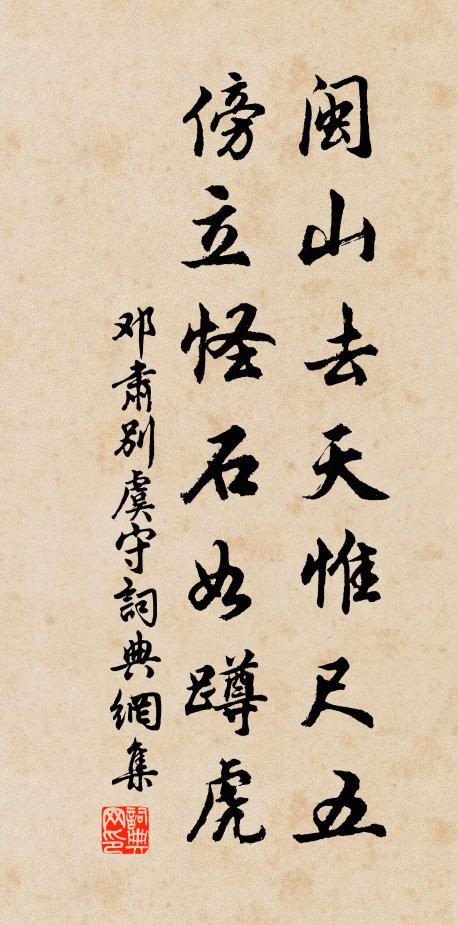 闽山去天惟尺五
傍立怪石如蹲虎
邓肃别虞守詞典網集
詞典
网印